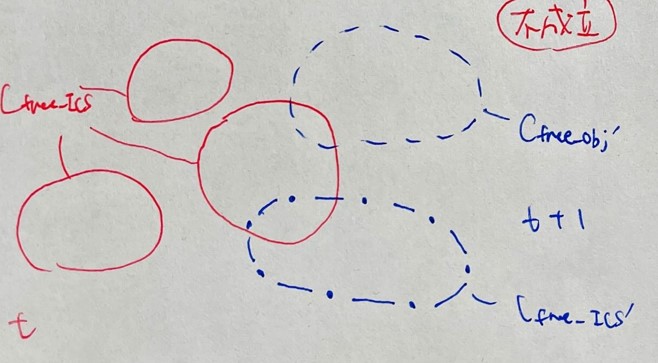 不成立
C_free_ICS
C_free_obj′
t+1
C_free_ICS′
t